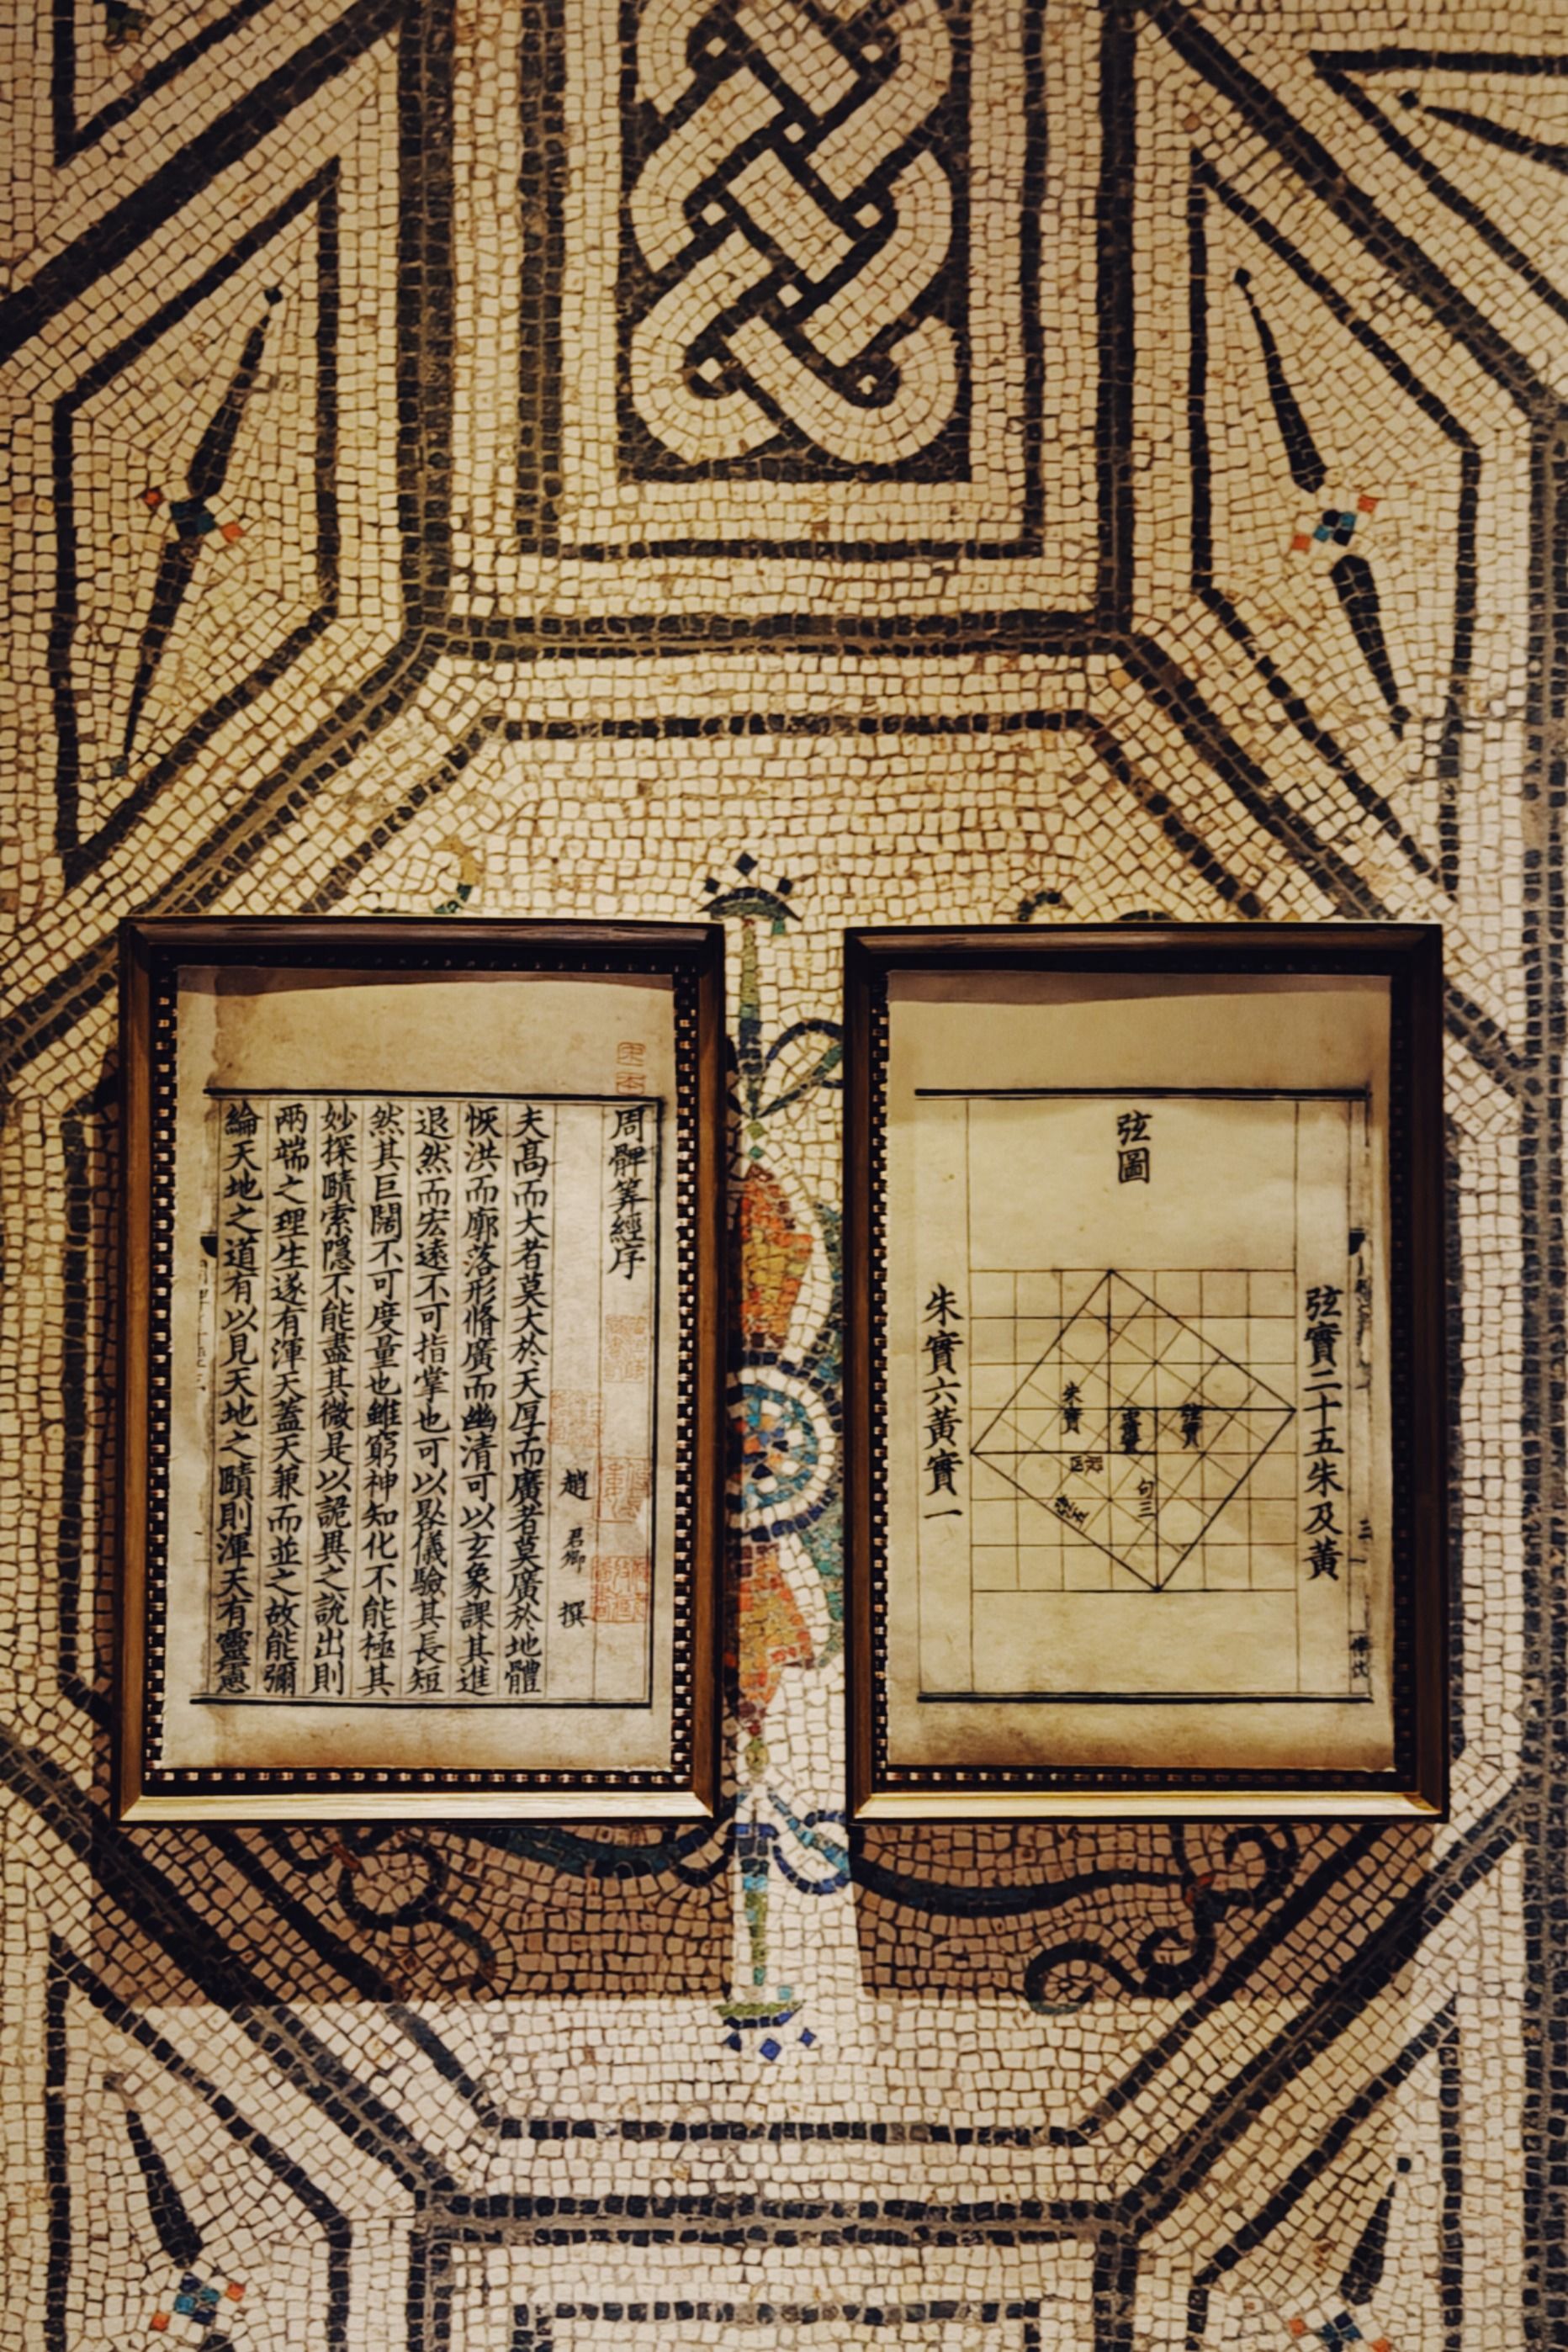 周髀筭經序
趙君卿撰
夫髙而大者莫大於天厚而廣者莫廣於地體
恢洪而廓落形脩廣而幽清可以玄象課其進
退然而宏遠不可指掌也可以晷儀驗其長短
然其巨闊不可度量也雖窮神知化不能極其
妙探賾索隱不能盡其微是以詭異之說出則
兩端之理生遂有渾天蓋天兼而並之故能彌
綸天地之道有以見天地之賾則渾天有靈憲
弦圖
弦實二十五朱及黃
朱實六黃實一
朱實
弦實
句三